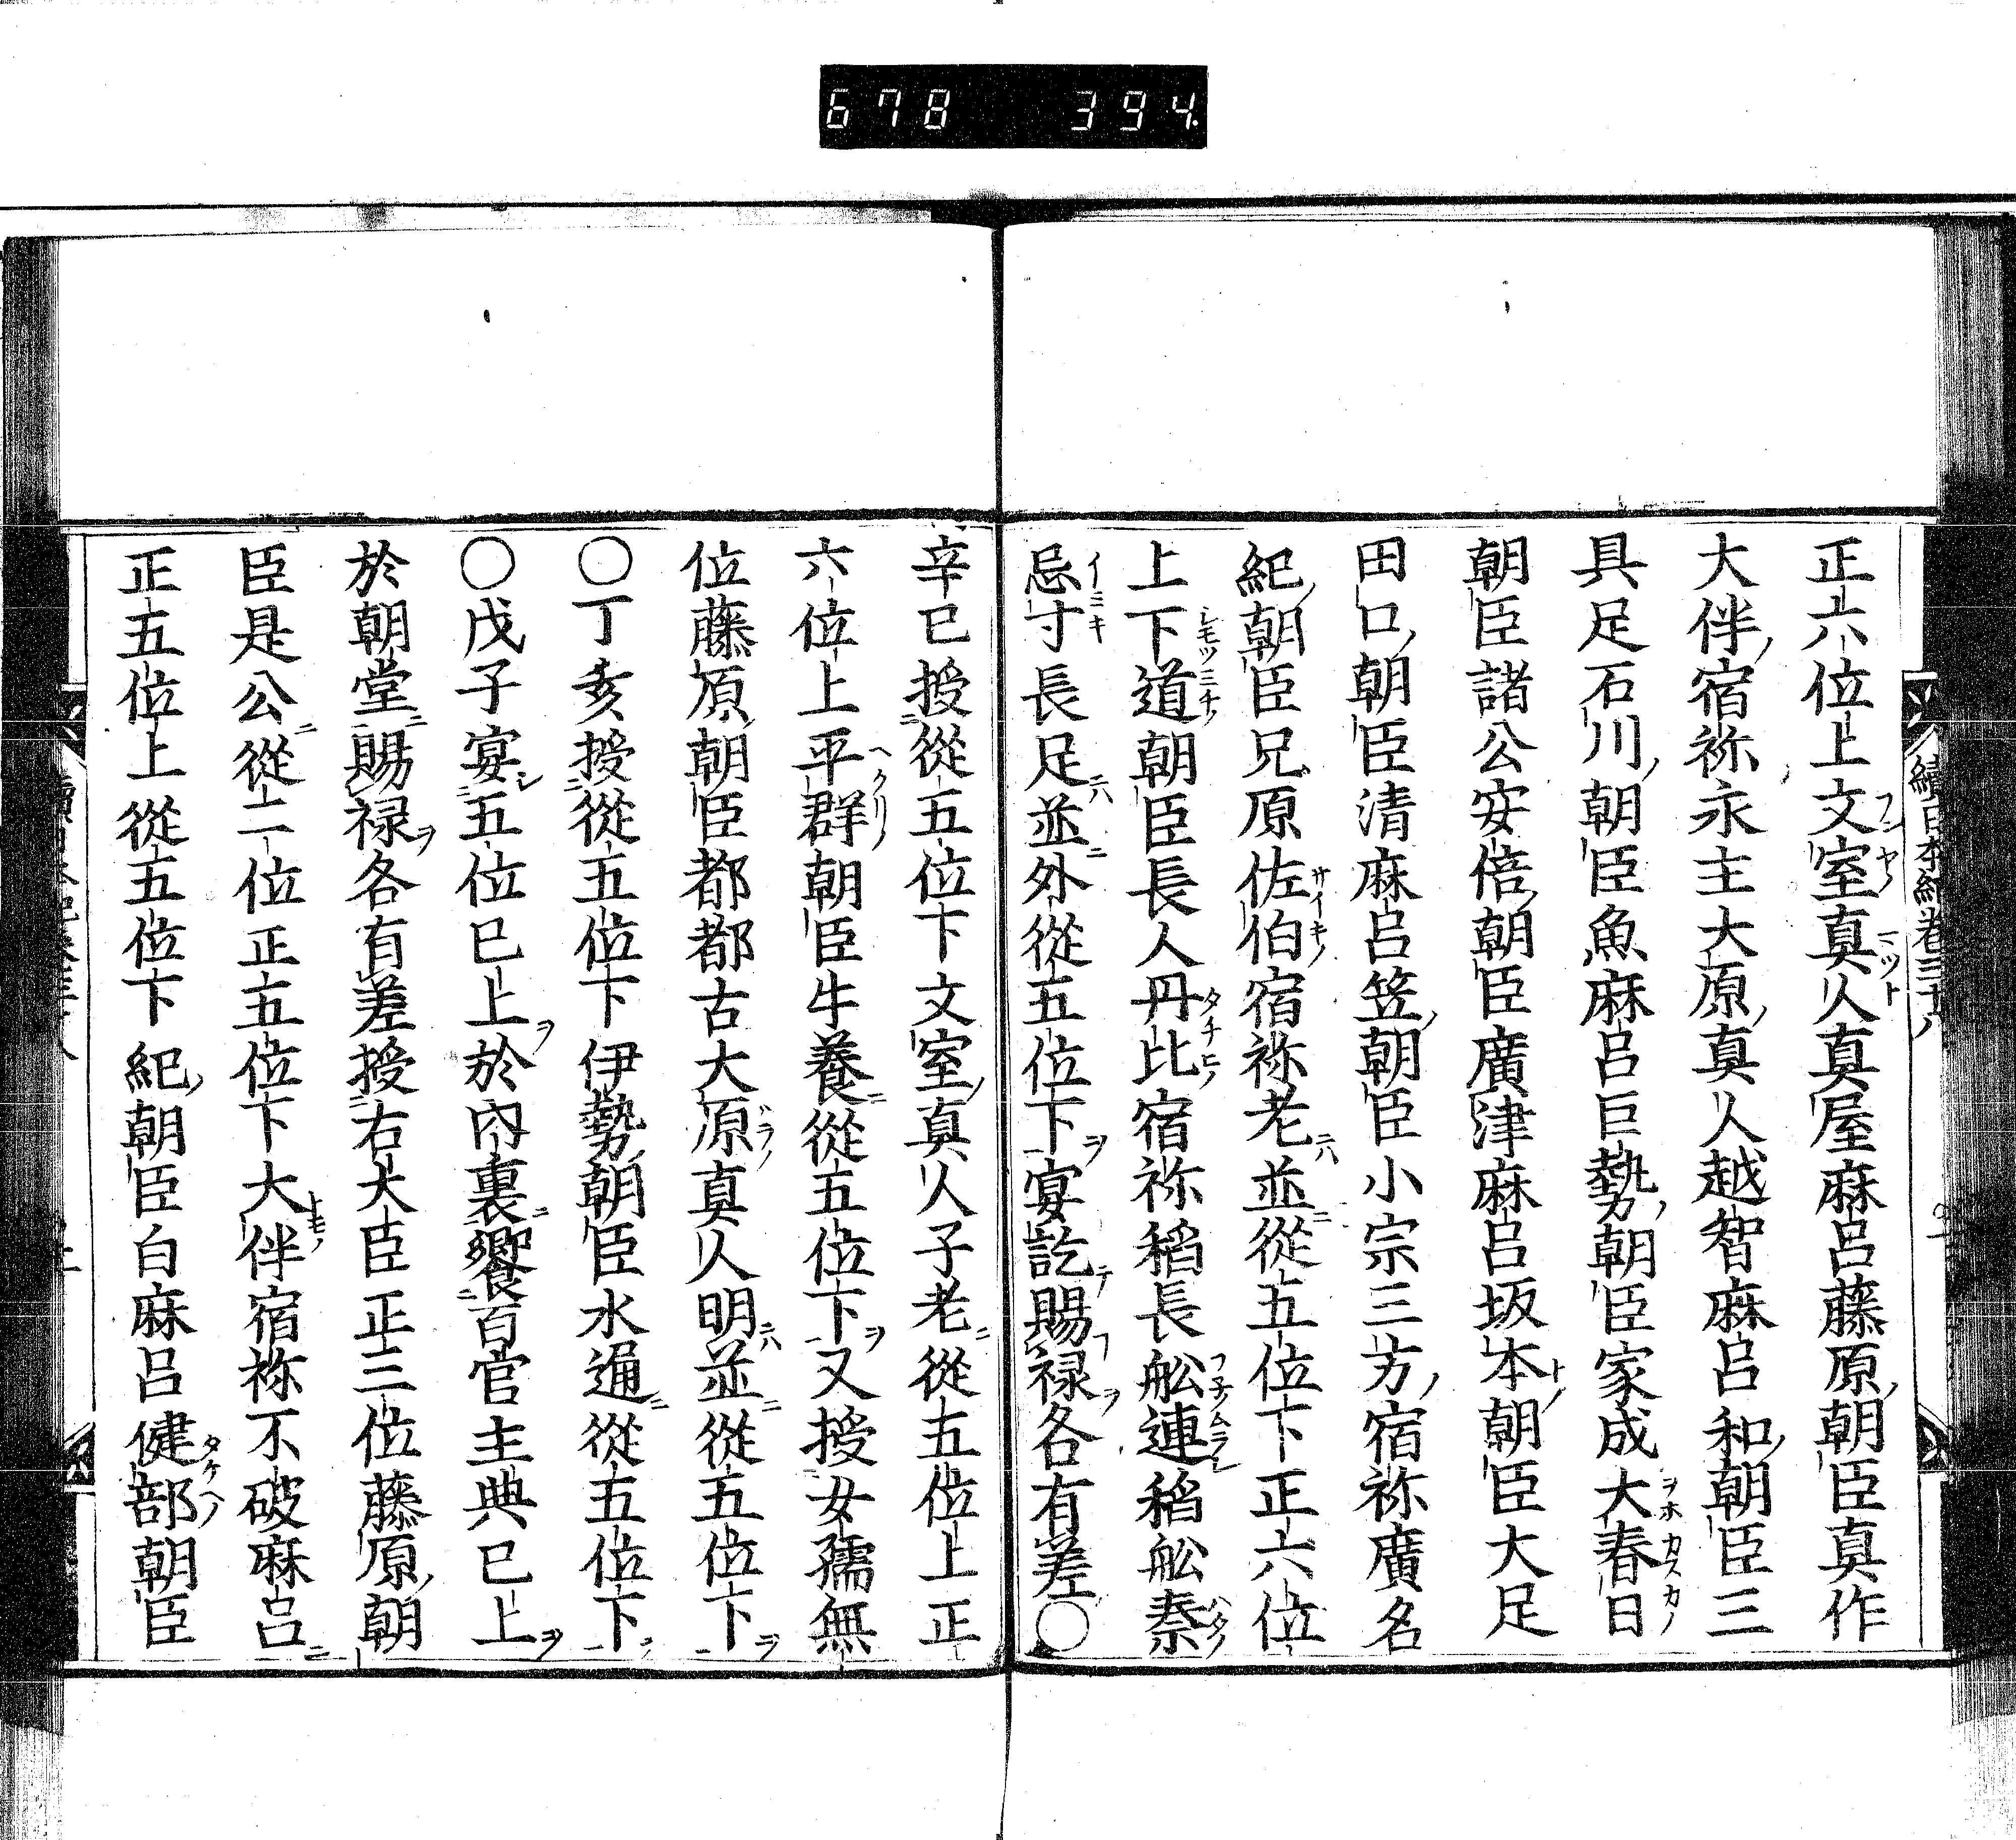 678 394
續日本紀卷三十八
正六位上文室真人真屋麻呂藤原朝臣真作
大伴宿祢永主大原真人越智麻呂和朝臣三
具足石川朝臣魚麻呂巨勢朝臣家成大春日
朝臣諸公安倍朝臣廣津麻呂坂本朝臣大足
田口朝臣清麻呂笠朝臣小宗三方宿祢廣名
紀朝臣兄原佐伯宿祢老並從五位下正六位
上下道朝臣長人丹比宿祢稻長舩連稻舩秦
忌寸長足並外從五位下宴訖賜禄各有差〇
辛巳授從五位下文室真人子老從五位上正
六位上平群朝臣牛養從五位下又授女孺無
位藤原朝臣都都古大原真人明並從五位下
〇丁亥授從五位下伊勢朝臣水通從五位下
〇戊子宴五位已上於內裏饗百官主典已上
於朝堂賜禄各有差授右大臣正三位藤原朝
臣是公從二位正五位下大伴宿祢不破麻呂
正五位上從五位下紀朝臣白麻呂健部朝臣